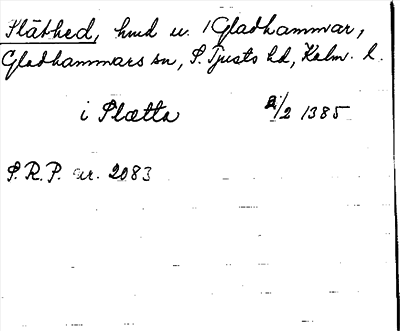 Släthed, hmd u. 1 Gladhammar,
Gladhammars sn, S. Tjusts hd, Kalm. l.
i Slætta 2/2 1385
S.R.P. nr. 2083